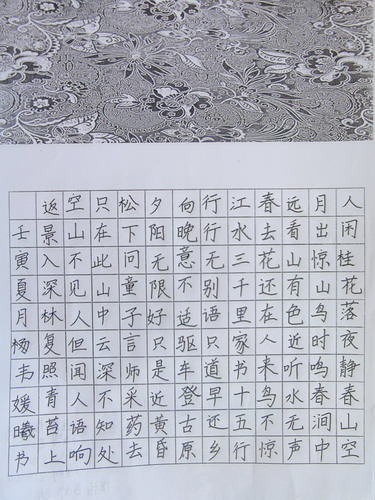 人闲桂花落夜静春山空
月出惊山鸟时鸣春涧中
远看山有色近听水无声
春去花还在人来鸟不惊
江水三千里家书十五行
行行无别语只道早还乡
向晚意不适驱车登古原
夕阳无限好只是近黄昏
松下问童子言师采药去
只在此山中云深不知处
空山不见人但闻人语响
返景入深林复照青苔上
壬寅夏月杨韦媛曦书